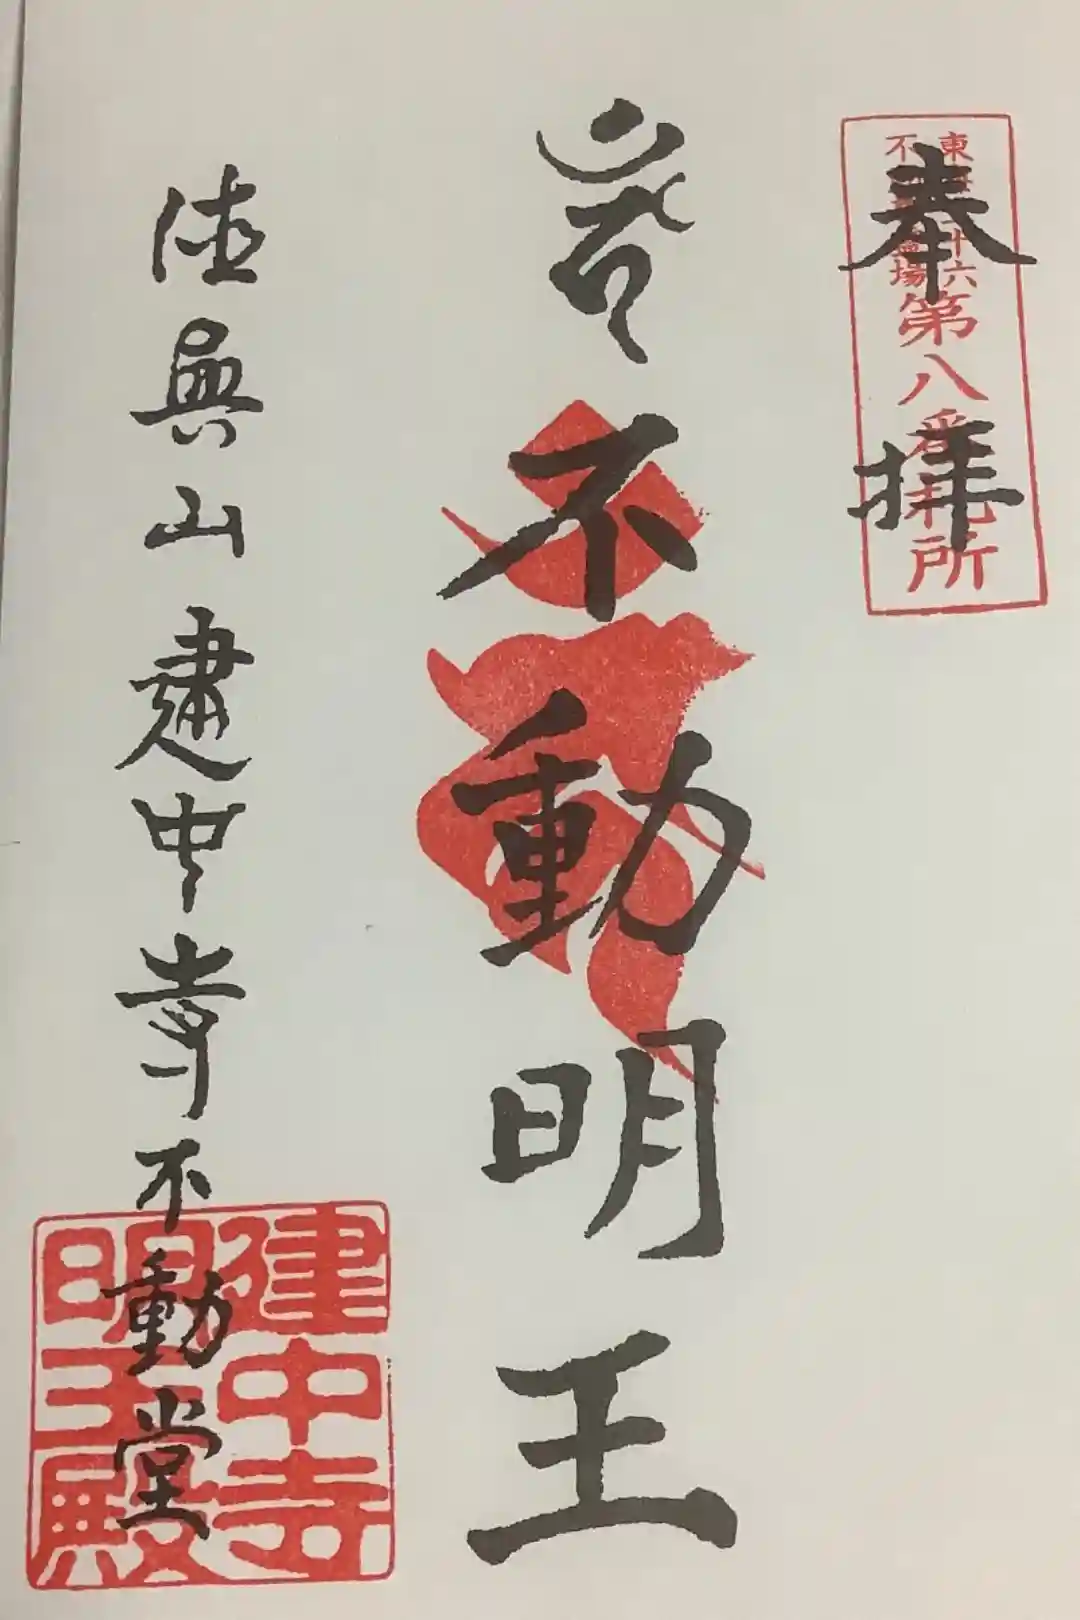 奉拝
東海三十六
不動尊霊場
第八番札所
不動明王
徳興山建中寺不動堂
建中寺
明王殿